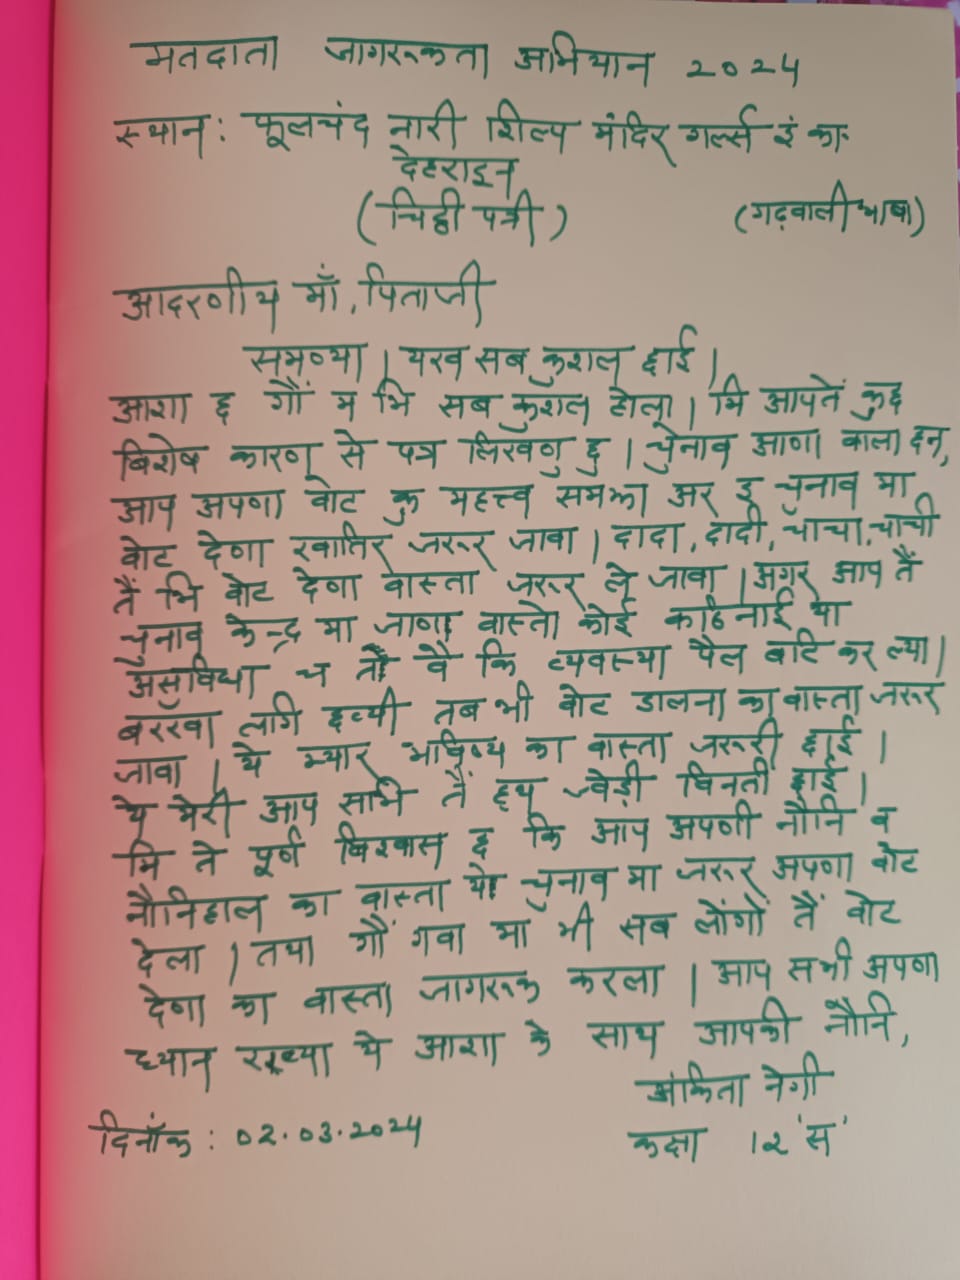 मतदाता जागरूकता अभियान 2024
स्थान: फूलचंद नारी शिल्प मंदिर गर्ल्स इं का.
देहरादून
(चिट्ठी पत्री) (गढ़वाली भाषा)
आदरणीय माँ, पिताजी
समन्या। यरव सब कुशल छाई।
आशा छ गौं म भि सब कुशल होला। मि आपतें कुछ
विशेष कारण से पत्र लिखणु छु। चुनाव आणा वाला छन,
आप अपणा वोट कु महत्त्व समझा अर इ चुनाव मा
वोट देणा खातिर जरूर जावा। दादा, दादी, चाचा, चाची
तैं भि वोट देणा वास्ता जरूर ले जावा। अगर आप तैं
चुनाव केन्द्र मा जाणा वास्ता कोई कठिनाई या
असुविधा च तो वै कि व्यवस्था पैल बटि कर ल्या।
बरखा लागि तब भी वोट डालना का वास्ता जरूर
जावा। ये म्यार भविष्य का वास्ता जरूरी छाई।
ये मेरी आप सभि तैं हथ ज्वेड़ी विनती छाई।
मि ते पूर्ण विश्वास छ कि आप अपणी नौनि व
नौनिहाल का वास्ता ये चुनाव मा जरूर अपणा वोट
देला। तथा गौं गवा मा भी सब लोगों तैं वोट
देणा का वास्ता जागरूक करला। आप सभी अपणा
ध्यान रख्या ये आशा के साथ आपकी नौनि,
अंकिता नेगी
दिनाँक: 02.03.2024 कक्षा 12 'स'